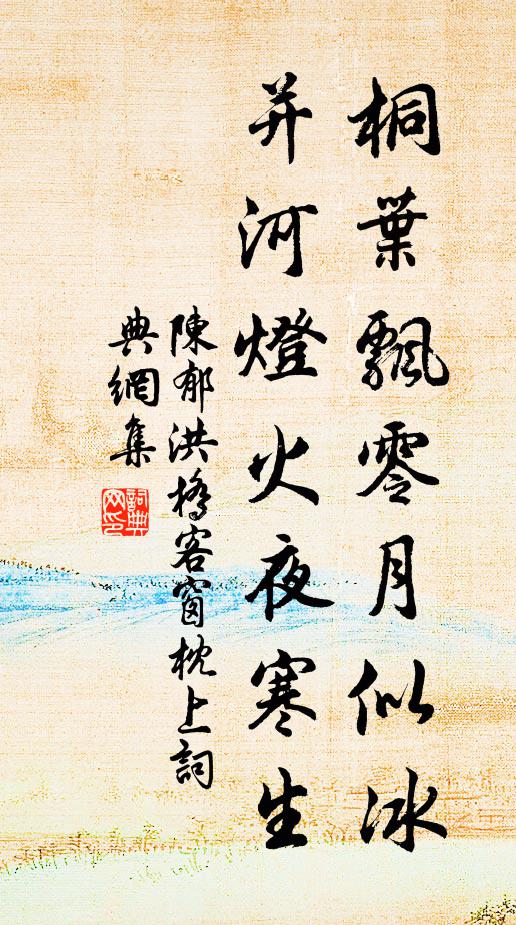 桐葉飄零月似冰
并河燈火夜寒生
陳郁洪橋客窗枕上詞
典網集
詞典網印